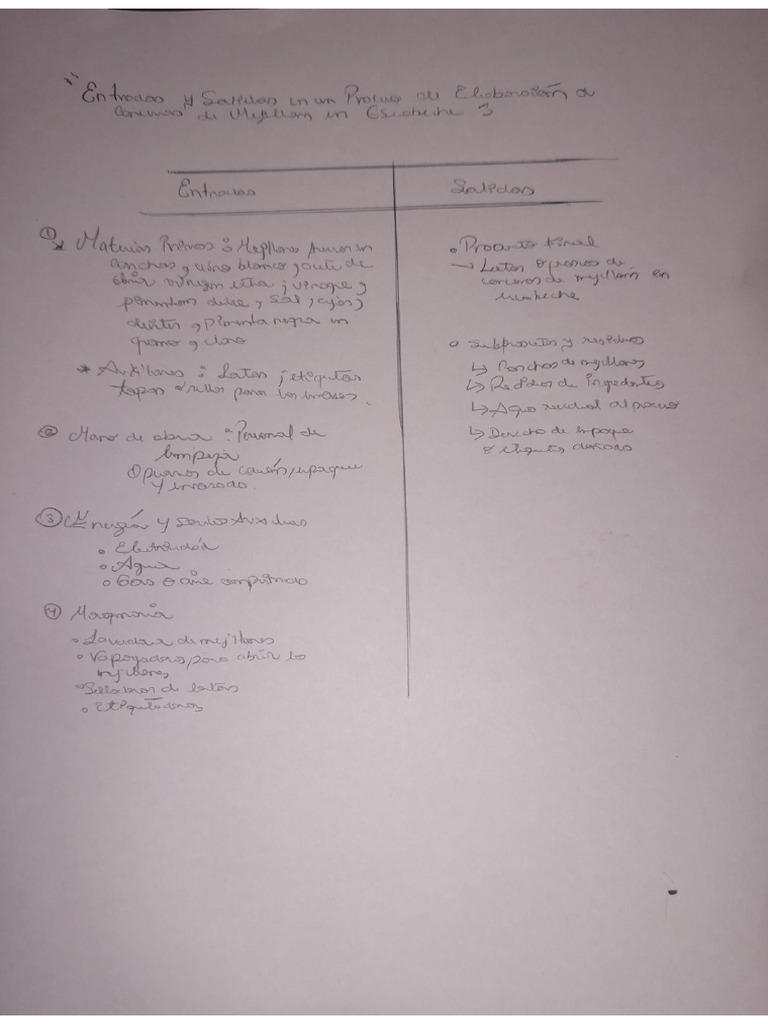 "Entradas y Salidas en un Proceso de Elaboración de
Conservas de Mejillones en Escabeche"
Entradas
Salidas
① Materias Primas: Mejillones frescos en
conchas, vino blanco, aceite de
oliva virgen extra; vinagre y
pimenton dulce, sal, ajos,
pimienta negra en
grano y clavo
* Auxiliares: Latas; etiquetas
tapas o sellos para los envases.
② Mano de obra: Personal de
limpieza
Operarios de cocción, empaque
y envasado.
③ Energía y Servicios Auxiliares
Electricidad
Agua
Gas o aire comprimido
④ Maquinaria
Lavadora de mejillones
Vaporizadores para abrir los
mejillones
Selladoras de latas
Etiquetadoras
Producto final
→ Latas o frascos de
conservas de mejillón en
escabeche
Subproductos y residuos
↳ Conchas de mejillones
↳ Residuos de ingredientes
↳ Agua residual del proceso
↳ Desecho de empaque
o etiquetas dañadas